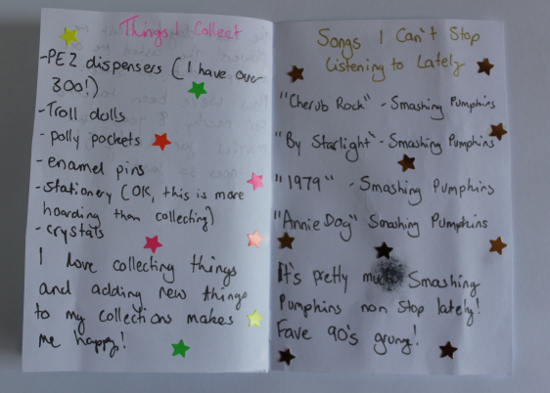 Things I Collect
-PEZ dispensers (I have over
300!)
-Troll dolls
-polly pockets
-enamel pins
-stationery (OK, this is more
hoarding than collecting)
-crystals
I love collecting things
and adding new things
to my collections makes
me happy!
Songs I Can't Stop
Listening to Lately
"Cherub Rock" - Smashing Pumpkins
"By Starlight" - Smashing Pumpkins
"1979" - Smashing Pumpkins
"Annie Dog" Smashing Pumpkins
It's pretty much Smashing
Pumpkins non stop lately!
Fave 90's grung!